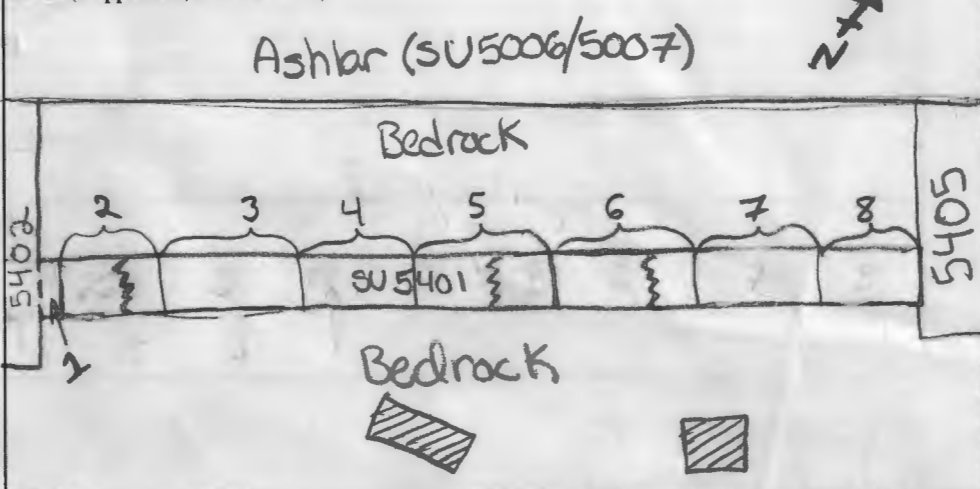 Ashlar (SU5006/5007)
N
Bedrock
5402
2
3
4
5
6
7
8
5405
SU5401
1
Bedrock